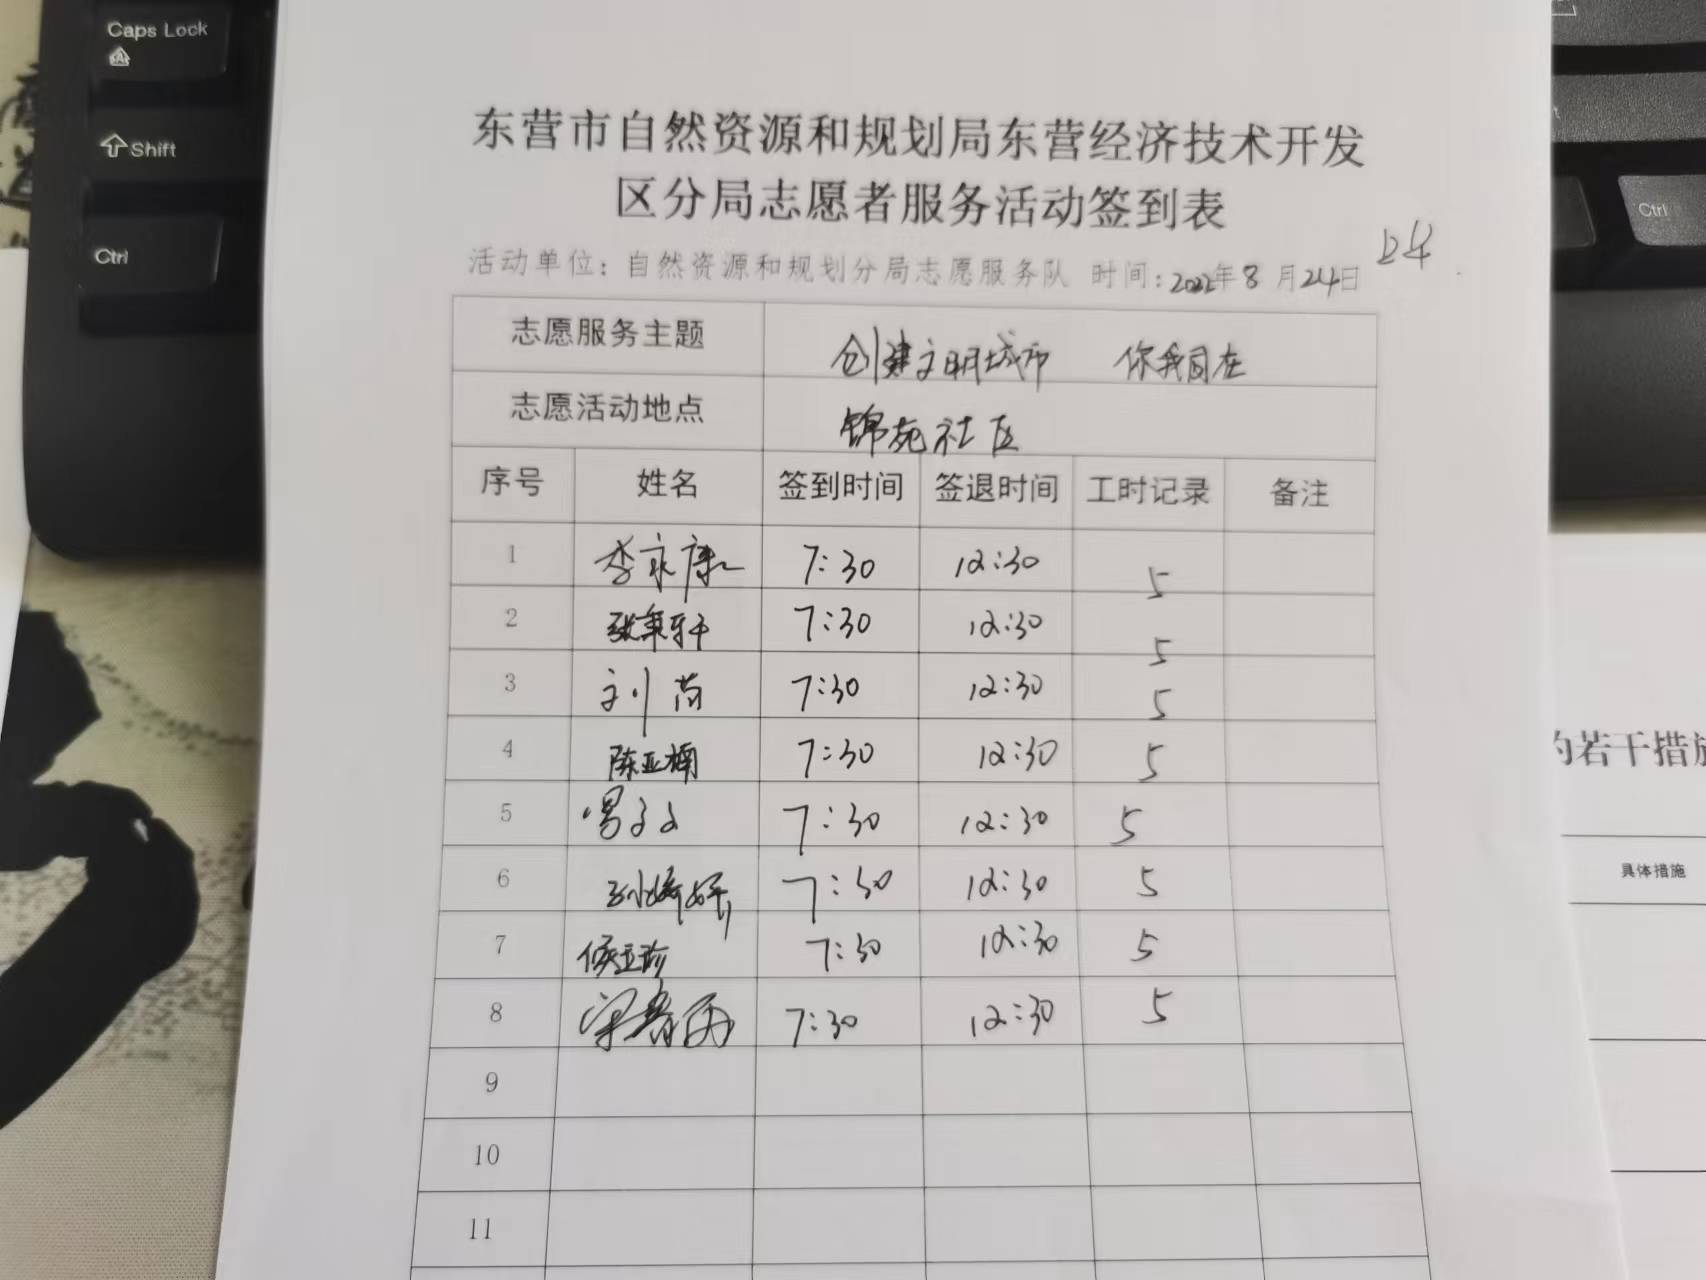 Caps Lock
Shift
Ctrl
Ctrl
东营市自然资源和规划局东营经济技术开发
区分局志愿者服务活动签到表
24
活动单位：自然资源和规划分局志愿服务队 时间：2022年8月24日
志愿服务主题 创建文明城市 你我同在
志愿活动地点 锦苑社区
序号 姓名 签到时间 签退时间 工时记录 备注
1 李永康 7:30 12:30 5
2 张秉轩 7:30 12:30 5
3 刘 7:30 12:30 5
4 陈亚楠 7:30 12:30 5
5 7:30 12:30 5
6 7:30 12:30 5
7 侯亚珍 7:30 12:30 5
8 7:30 12:30 5
9
10
11
的若干措施
具体措施